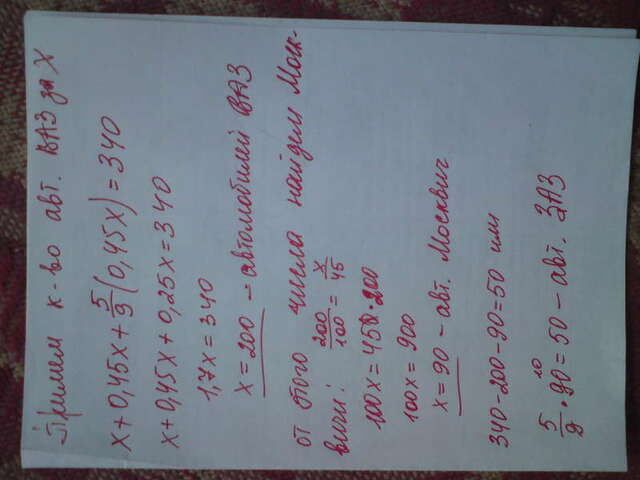 Примем к-во авт. ВАЗ за X
x+0,45x+5/9(0,45x)=340
x+0,45x+0,25x=340
1,7x=340
x=200 – автомобилей ВАЗ
от этого числа найдем Моск-
вичи: 200/100 = x/45
100x=45·200
100x=900
x=90 – авт. Москвич
340-200-90=50 или
5/9·90=50 – авт. ЗАЗ
10